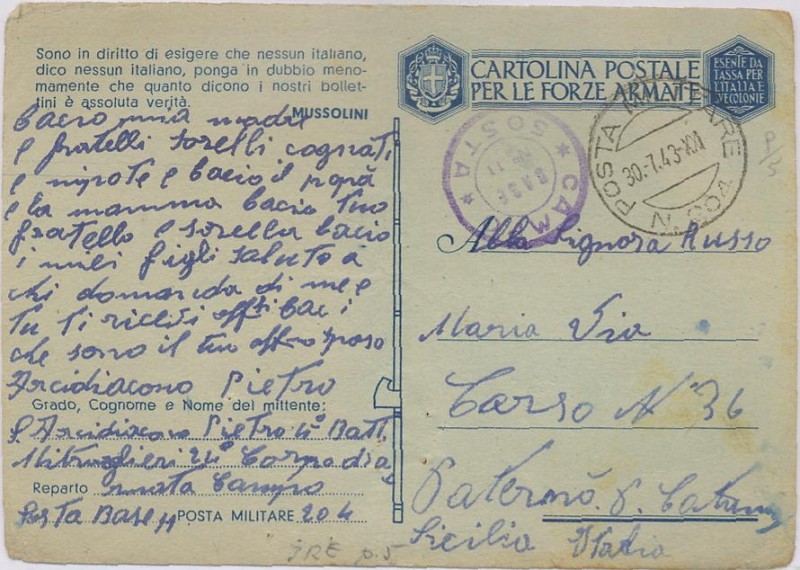 Sono in diritto di esigere che nessun italiano,
dico nessun italiano, ponga in dubbio meno-
mamente che quanto dicono i nostri bollet-
tini è assoluta verità.
MUSSOLINI
bacio mia madre
e fratelli sorelli cognati
e nipote e bacio il papà
e la mamma bacio tuo
fratello e sorella bacio
i miei figli saluto a
chi domanda di me e
tu ti ricevi baci
che sono il tuo sposo
Arcidiacono Pietro
Grado, Cognome e Nome del mittente:
Arcidiacono Pietro Batt
Mitraglieri Corpo
Reparto Campo
Posta Base 11 POSTA MILITARE 204
CARTOLINA POSTALE
PER LE FORZE ARMATE
ESENTE DA
TASSA PER
L'ITALIA E
COLONIE
CAMPO SOSTA
BASE
POSTA MILITARE
30.7.43-XXI
N. 204
P/3
Alla Signora Russo
Maria Via
Carso N° 36
Paternò P. Catania
Sicilia Italia
p. 5